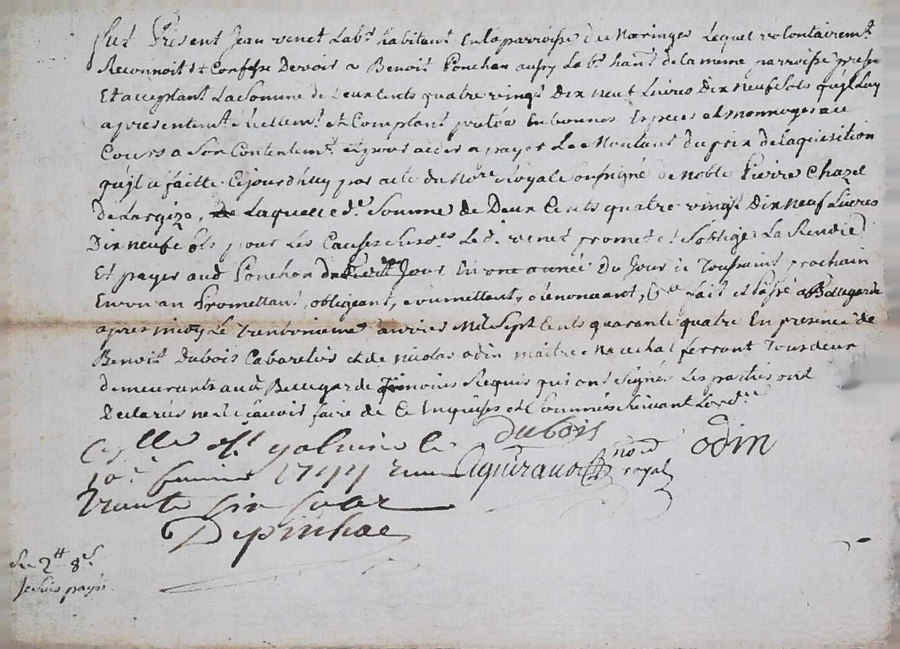 fut Présent Jean venet Labr habitant En la parroisse de Lequel volontairemt
Reconnoit et Confesse Devoir a Benoit Ponchon aussy Labr hant de la meme parroisse presnt
Et acceptant La Somme de Deux Cents quatre vingt Dix neuf Livres Dix neuf sols qu'il Luy
a presentemt réellemt et Comptant pretée En bonnes Especes et monnoyes au
Cours a Son Contentemt Et pour aider a payer Le Montant du prix de laquisition
quil a faitte Cejourdhuy par acte du Nore Royal Soussigné de noble Pierre Chazel
De Laquelle de Somme de Deux Cents quatre vingt Dix neuf Livres
Dix neuf sols pour Les Causes Le d. venet promet et s'oblige La Rendre
Et payer aud Ponchon Jour En une année Du Jour de Toussaint prochain
En un an Promettant, obligeant, soumettant, Renonçant, fait et passé a Bellegarde
apres midy Le Trente unieme Janvier Mil Sept Cents quarante quatre En presence de
Benoit Dubois Cabaretier et de Nicolas odin maitre Marechal ferrant Tous deux
demeurants aud Bellegarde Témoins Requis qui ont Signés Les parties ont
Declarés ne le Scavoir faire de Ce Enquises et Sommées Suivant Lordce
Dubois
odin
not royal
Con lle a St galmier le
10e fevrier 1744 reçu
Trante six sols
Depinhac
Re 2tt 8s
Je suis payé